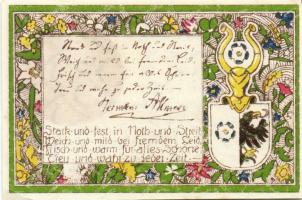 Stark und fest in Noth und Streit,
Weich und mild bei fremdem Leid,
Frisch und warm für alles Schöne
Treu und wahr zu jeder Zeit.
Hermann Allmers
Stark·und·fest in Noth·und·Streit
Weich·und·mild bei fremdem Leid
Frisch·und·warm für alles·Schöne
Treu·und·wahr zu jeder·Zeit